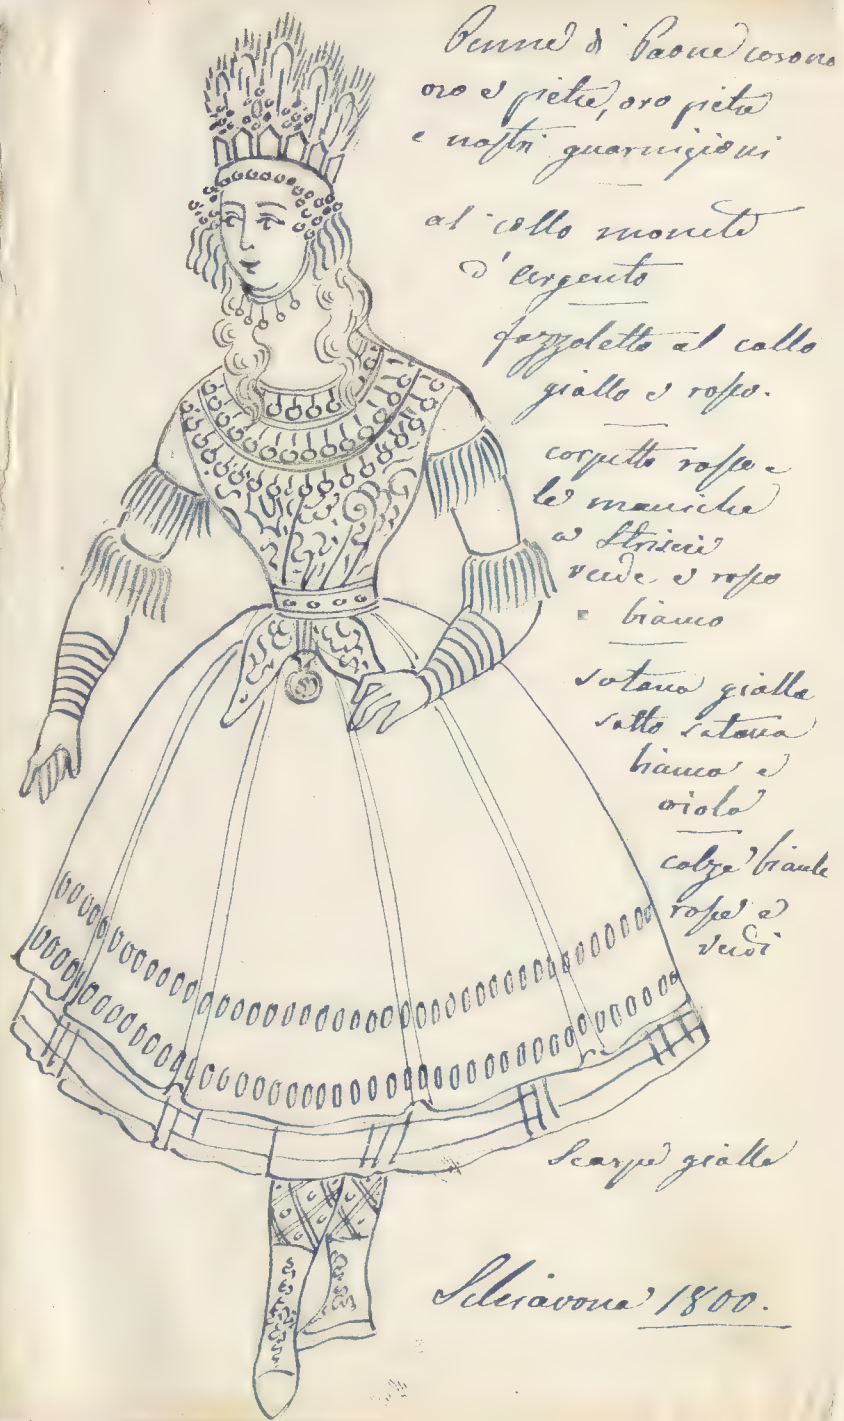 Penne di Paone corona
oro e pietre, oro pietre
e nastri guarnigioni
al collo monete
d'argento
fazzoletto al collo
giallo e rosso.
corpetto rosso e
le maniche
a striscie
verde e rosso
e bianco
sotana gialla
sotto sotana
bianca e
viola
calze bianche
rosse e
verdi
Scarpe gialle
Schiavona 1800.